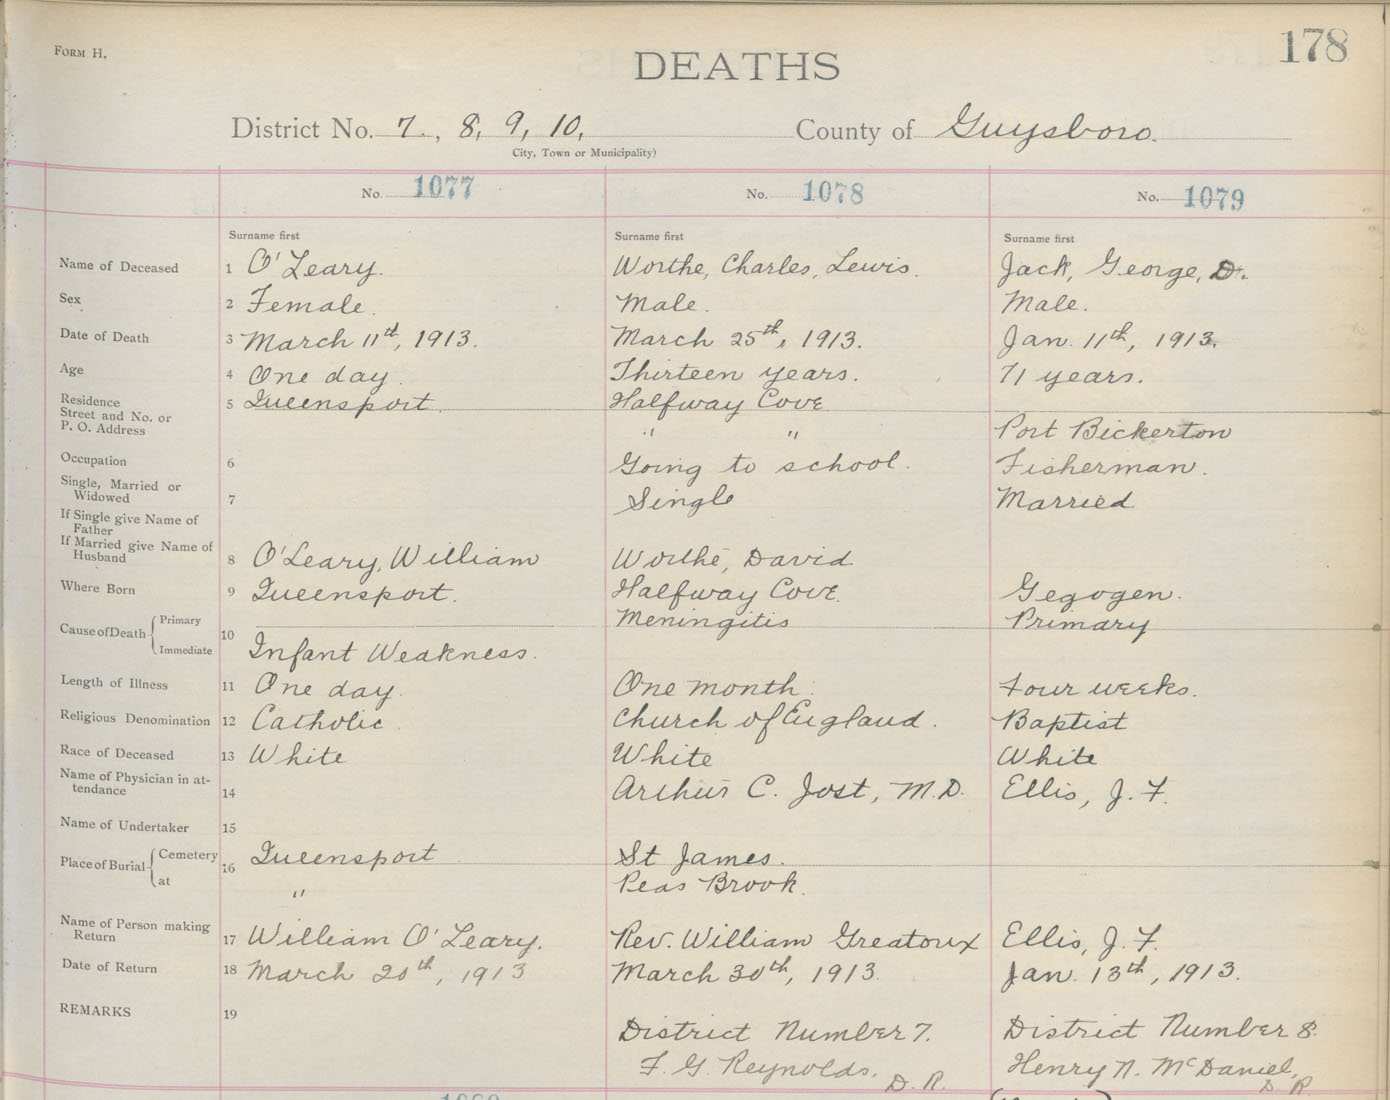 FORM H.
178
DEATHS
District No. 7., 8, 9, 10, County of Guysboro.
City, Town or Municipality)
No. 1077 No. 1078 No. 1079
Surname first Surname first Surname first
Name of Deceased 1 O'Leary. Worthe, Charles, Lewis. Jack, George, D.
Sex 2 Female. Male. Male.
Date of Death 3 March 11th, 1913. March 25th, 1913. Jan. 11th, 1913.
Age 4 One day. Thirteen years. 71 years.
Residence 5 Queensport. Halfway Cove
Street and No. or
P. O. Address " " Port Bickerton
Occupation 6 Going to school. Fisherman.
Single, Married or
Widowed 7 Single Married.
If Single give Name of
Father
If Married give Name of
Husband 8 O'Leary, William Worthe, David.
Where Born 9 Queensport. Halfway Cove. Gegogen.
Cause of Death Primary 10 Meningitis Primary
Immediate Infant Weakness.
Length of Illness 11 One day. One month. Four weeks.
Religious Denomination 12 Catholic. Church of England. Baptist
Race of Deceased 13 White White White
Name of Physician in at-
tendance 14 Arthur C. Jost, M.D. Ellis, J. F.
Name of Undertaker 15
Place of Burial Cemetery 16 Queensport St James.
at " Peas Brook.
Name of Person making
Return 17 William O'Leary. Rev. William Greatorix Ellis, J. F.
Date of Return 18 March 20th, 1913 March 30th, 1913. Jan. 13th, 1913.
REMARKS 19
District Number 7. District Number 8.
F. G. Reynolds. D. R. Henry N. McDaniel, D. R.